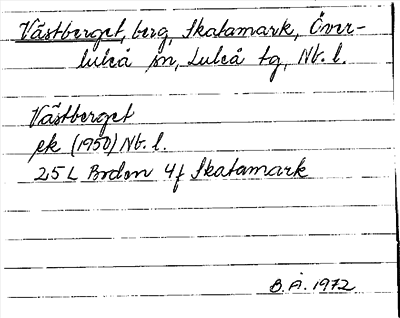 Västberget, berg, Skatamark, Över-
luleå sn, Luleå tg, Nb. l.
Västberget
ek (1950) Nb. l.
25 L Boden 4f Skatamark
B. Å. 1972